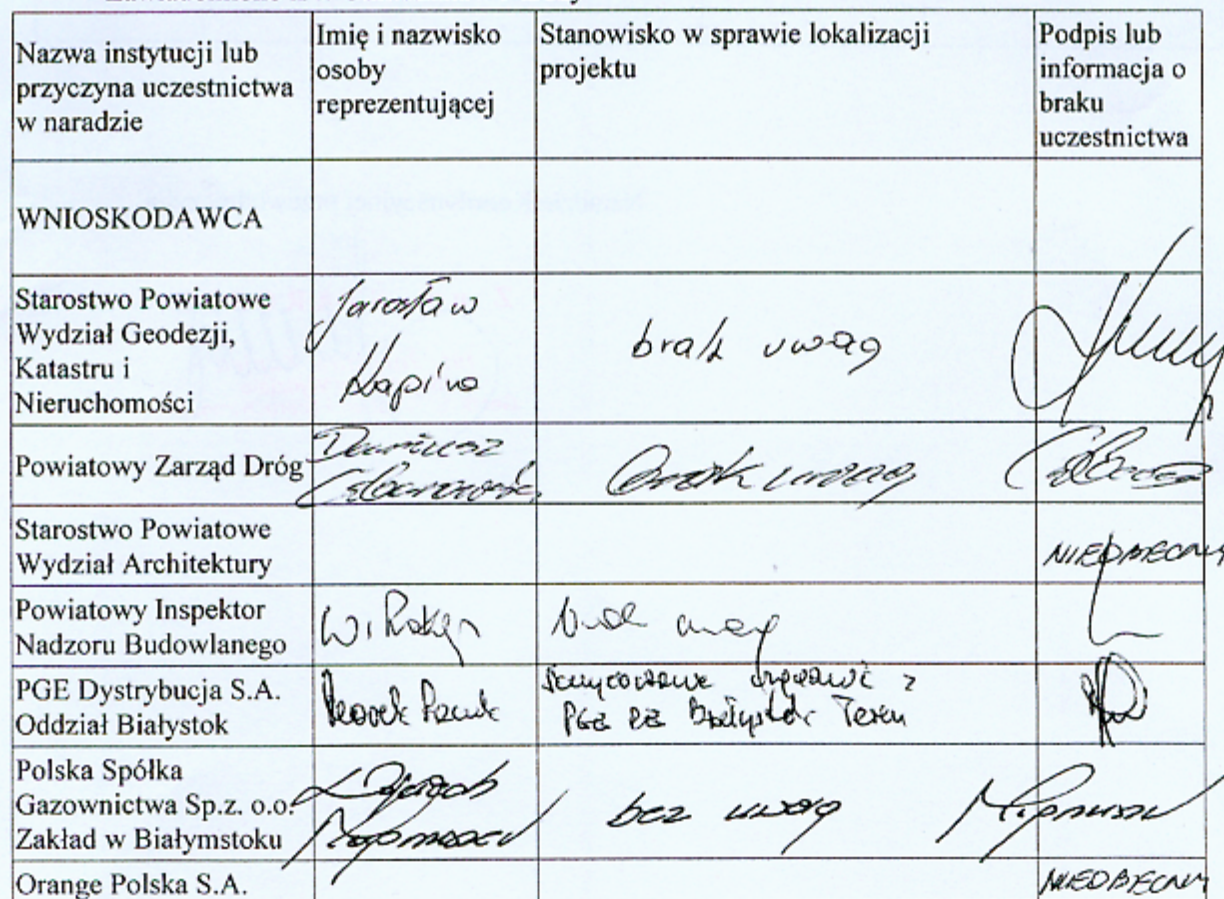 Nazwa instytucji lub
przyczyna uczestnictwa
w naradzie
Imię i nazwisko
osoby
reprezentującej
Stanowisko w sprawie lokalizacji
projektu
Podpis lub
informacja o
braku
uczestnictwa
WNIOSKODAWCA
Starostwo Powiatowe
Wydział Geodezji,
Katastru i
Nieruchomości
Jarosław
brak uwag
Powiatowy Zarząd Dróg
Dariusz
brak uwag
Starostwo Powiatowe
Wydział Architektury
NIEOBECNY
Powiatowy Inspektor
Nadzoru Budowlanego
brak uwag
PGE Dystrybucja S.A.
Oddział Białystok
z
PGE RE Białystok Teren
Polska Spółka
Gazownictwa Sp.z. o.o.
Zakład w Białymstoku
bez uwag
Orange Polska S.A.
NIEOBECNY